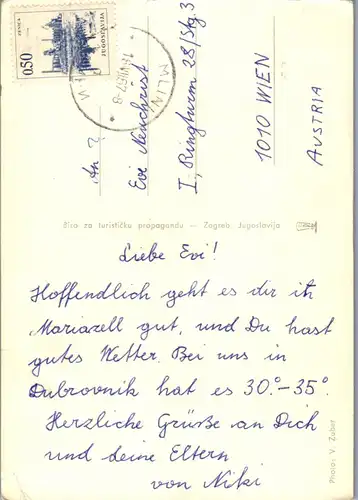 ZENICA
0.50
JUGOSLAVIJA
MLINI
An ?
Evi Neuchrist
I, Ringturm 28/Stg 3
1010 WIEN
AUSTRIA
žiro za turističku propagandu — Zagreb, Jugoslavija
Liebe Evi!
Hoffendlich geht es dir in
Mariazell gut, und Du hast
gutes Wetter. Bei uns in
Dubrovnik hat es 30°-35°.
Herzliche Grüße an Dich
und deine Eltern
von Niki
Photo: V. Zuber